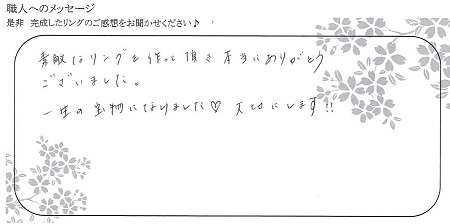 職人へのメッセージ
是非 完成したリングのご感想をお聞かせください♪
素敵なリングを作って頂き本当にありがとう
ございました。
一生の宝物になりました♡ 大切にします!!